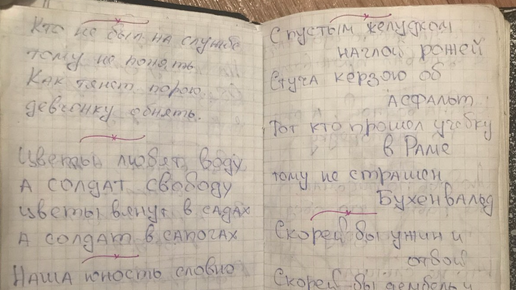 Кто не был на службе
тому не понять
Как тянет порою
девчонку обнять.
Цветы любят воду
А солдат свободу
цветы вянут в садах
А солдат в сапогах
Наша юность словно
С пустым желудком
наглой рожей
Стуча керзою об
асфальт
Тот кто прошел учебку
в Раме
тому не страшен
Бухенвальд
Скорей бы ужин и
отбой
Скорей бы дембель и